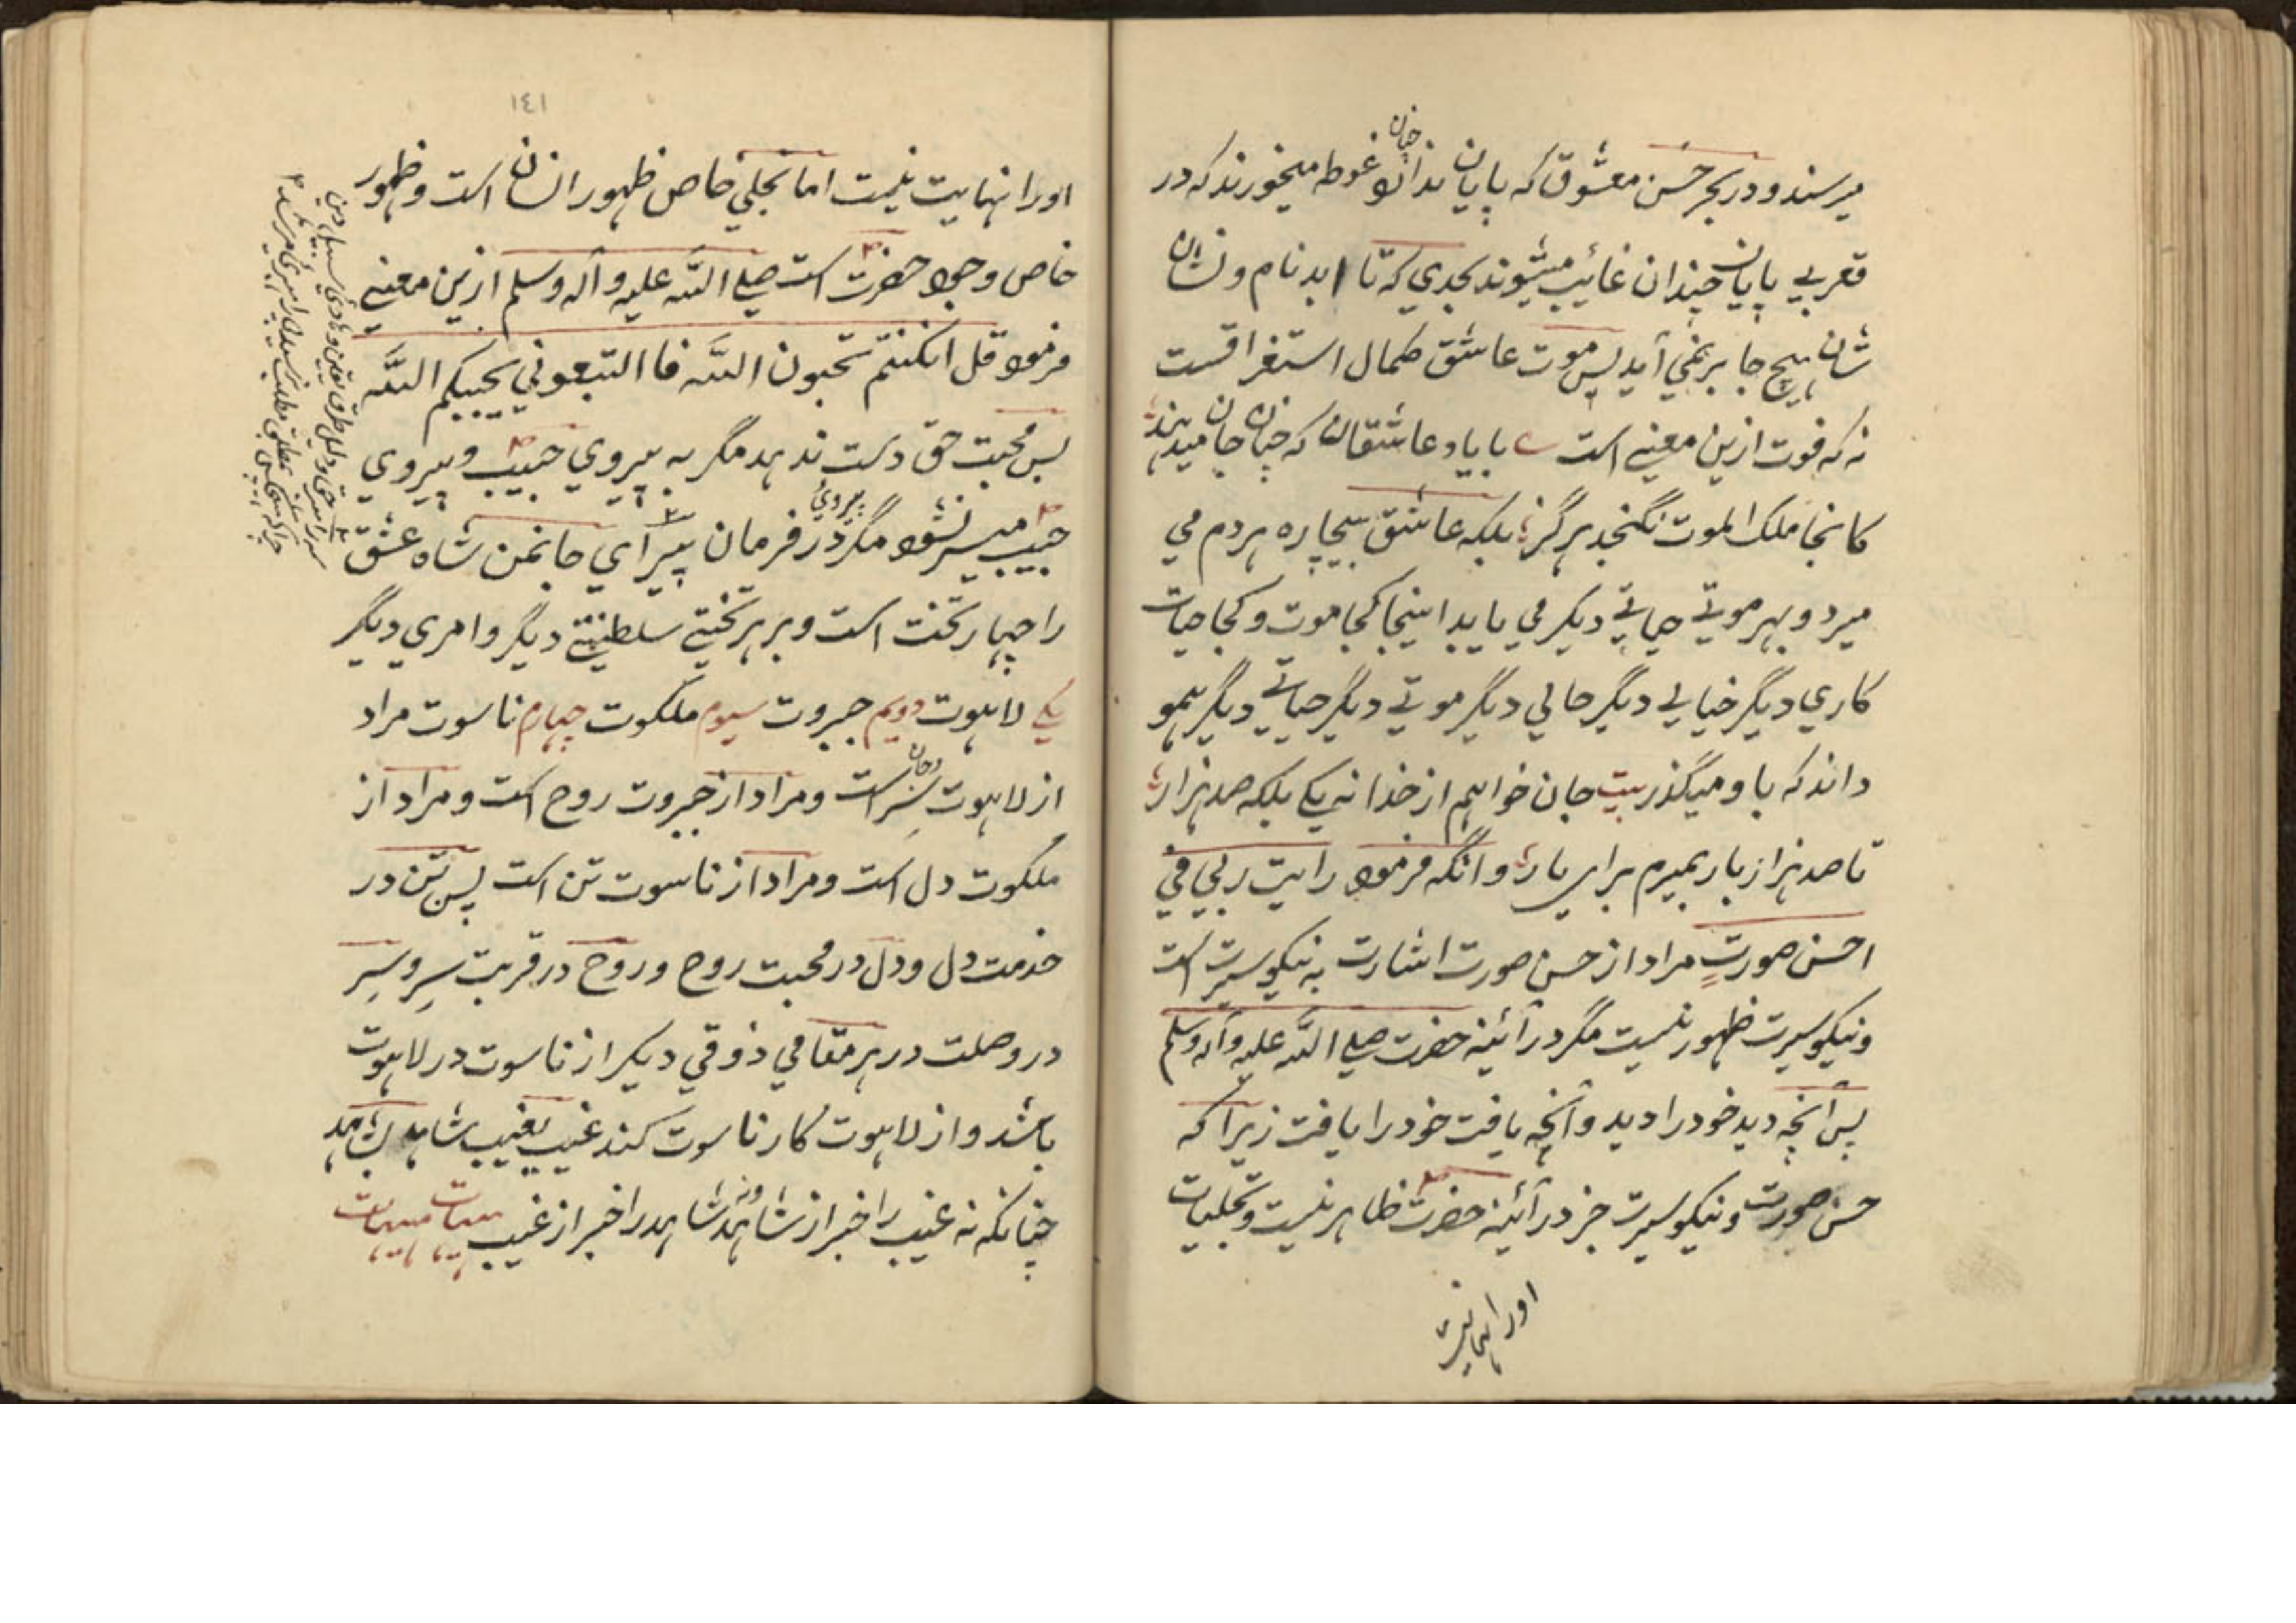 میرسند و در بحر حسن معشوق که پایان ندارد چنان غوطه میخورند که در
قعر بی پایان چندان غائب میشوند بحدی که تا ابد نام و نشان
شان هیچ جا بر نمی آید پس موت عاشق کمال استغراقست
نه که فوت ازین معنی است با یاد عاشقان که چنان جان میدهند
کانجا ملک الموت نگنجد هرگز بلکه عاشق بیچاره هردم می
میرد و بهر موتے حیاتے دیگر می یابد اینجا کجا موت و کجا حیات
کاری دیگر خیالی دیگر حالی دیگر موتے دیگر حیاتے دیگر همو
داند که باو میگذرد بیت جان خواهم از خدا نه یکے بلکه صد هزار
تا صد هزار بار بمیرم برای یار وانگه فرمود رایت ربی فی
احسن صورتٍ مراد از حسن صورت اشارت به نیکو سیرت است
و نیکو سیرت ظهور نیست مگر در آئینه حضرت صلی الله علیه وآله وسلم
پس آنچه دید خود را دید و آنچه یافت خود را یافت زیرا که
حسن صورت و نیکو سیرت جز در آئینه حضرت ظاهر نیست و تجلیات
اورا نهایت
١٤١
اورا نهایت نیست اما تجلی خاص ظهور انسان است و ظهور
خاص وجود حضرت است صلی الله علیه وآله وسلم ازین معنی
فرمود قل انکنتم تحبون الله فا التبعونی یحببکم الله
پس محبت حق دست ندهد مگر به پیروی حبیب و پیروی
حبیب میسر نشود مگر در پیروی فرمان پیر آی جانمن شاه عشق
را چهار تخت است و بر هر تختی سلطنتے دیگر و امری دیگر
یکے لاهوت دویم جبروت سیوم ملکوت چهارم ناسوت مراد
از لاهوت سِر است و مراد از جبروت روح است و مراد از
ملکوت دل است و مراد از ناسوت تن است پس تن در
خدمت دل و دل در محبت روح و روح در قربت سِر و سِر
در وصلت در هر مقامی ذوقی دیگر از ناسوت در لاهوت
باشد و از لاهوت کار ناسوت کند غیب بغیب شاهد بشاهد
چنانکه نه غیب را خبر از شاهد و نه شاهد را خبر از غیب هیهات هیهات